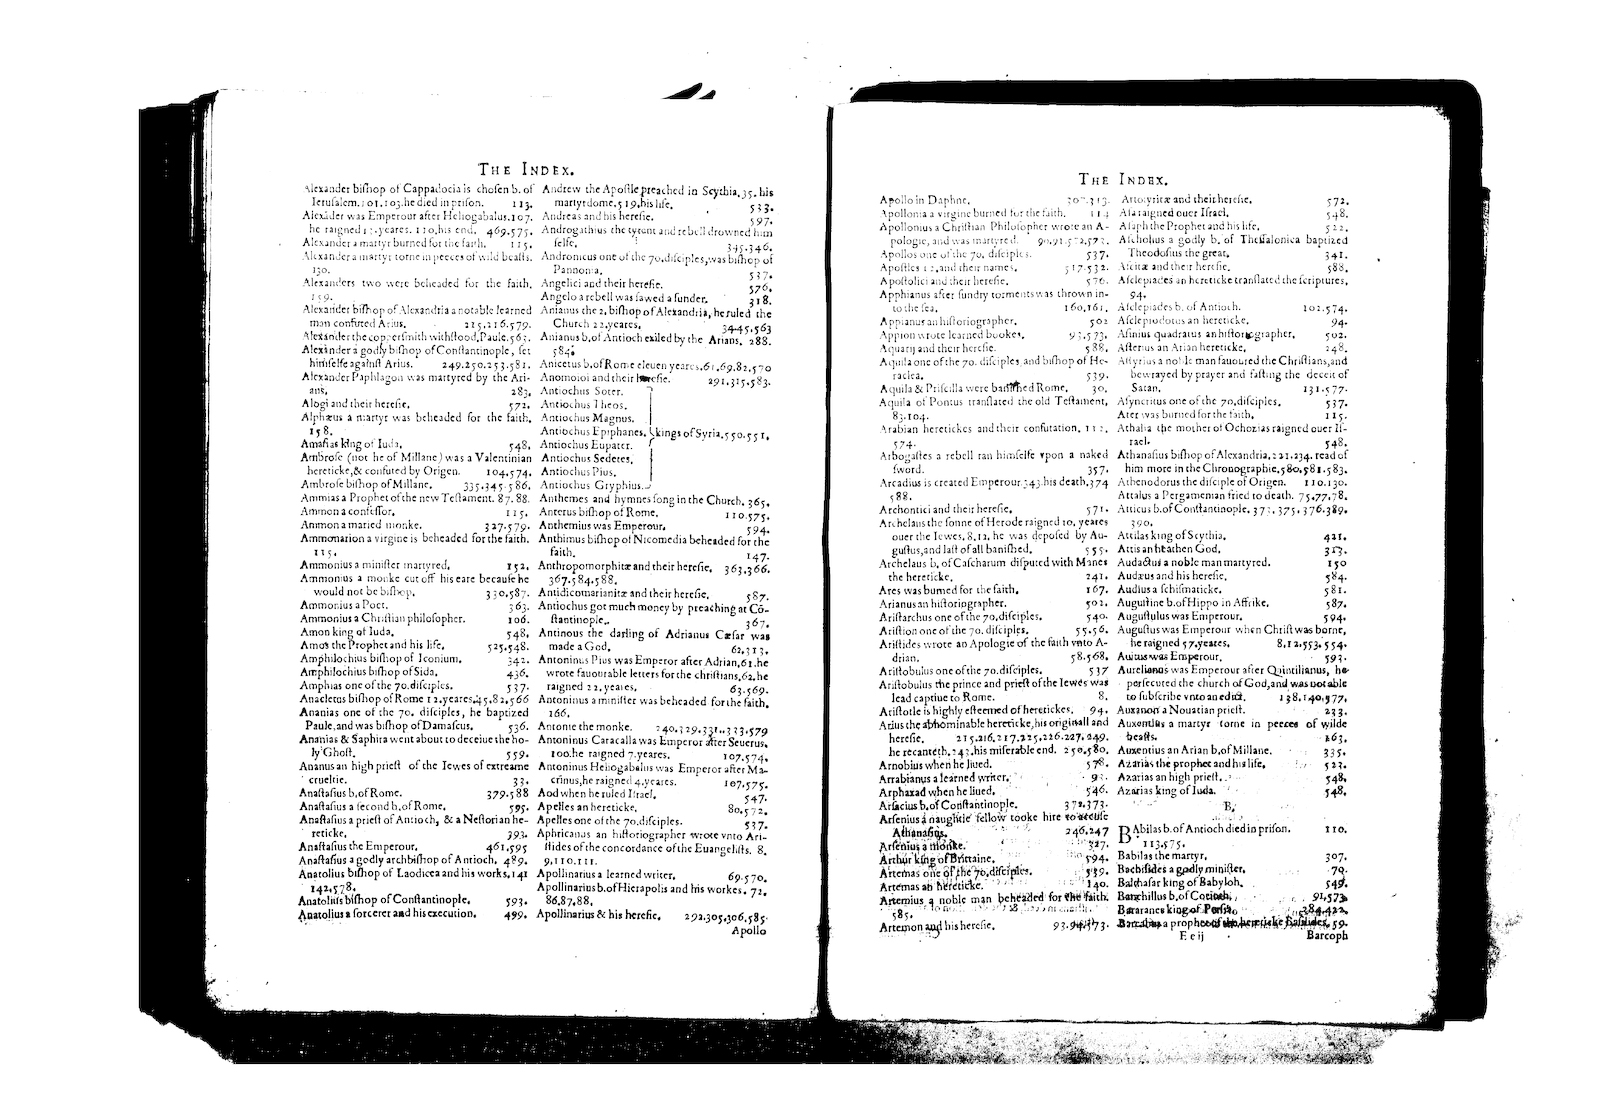 THE INDEX.
Alexander biſhop of Cappadocia is choſen b. of
Ieruſalem. 101.103. he died in priſon. 113.
Alexāder was Emperour after Heliogabalus. 107.
he raigned 13. yeares. 110, his end. 469.575.
Alexander a martyr burned for the faith. 115.
Alexander a martyr torne in peeces of wild beaſts.
130.
Alexanders two were beheaded for the faith.
159.
Alexander biſhop of Alexandria a notable learned
man confuted Arius. 215.216.579.
Alexander the coppersmith withſtood, Paule. 563.
Alexander a godly biſhop of Conſtantinople, ſet
himſelfe againſt Arius. 249.250.253.581.
Alexander Paphlagon was martyred by the Ari-
ans, 283.
Alogi and their hereſie, 572.
Alphæus a martyr was beheaded for the faith,
158.
Amaſias king of Iuda, 548.
Ambroſe (not he of Millane) was a Valentinian
hereticke, & confuted by Origen. 104,574.
Ambroſe biſhop of Millane, 335.345.586.
Ammias a Prophet of the new Teſtament. 87.88.
Ammon a confeſſor, 115.
Ammon a maried monke. 327.579.
Ammonarion a virgine is beheaded for the faith.
115.
Ammonius a miniſter martyred, 152.
Ammonius a monke cut off his eare becauſe he
would not be biſhop, 330,587.
Ammonius a Poet. 363.
Ammonius a Chriſtian philoſopher. 106.
Amon king of Iuda, 548.
Amos the Prophet and his life, 525.548.
Amphilochius biſhop of Iconium, 342.
Amphilochius biſhop of Sida, 436.
Amphias one of the 70. diſciples, 537.
Anacletus biſhop of Rome 12. yeares, 45,82,566
Ananias one of the 70. diſciples, he baptized
Paule, and was biſhop of Damaſcus, 536.
Ananias & Saphira went about to deceiue the ho-
ly Ghoſt, 559.
Ananus an high prieſt of the Iewes of extreame
crueltie. 33.
Anaſtaſius b, of Rome. 379.588
Anaſtaſius a ſecond b, of Rome, 595.
Anaſtaſius a prieſt of Antioch, & a Neſtorian he-
reticke, 393.
Anaſtaſius the Emperour, 461,595
Anaſtaſius a godly archbiſhop of Antioch, 489.
Anatolius biſhop of Laodicea and his works, 141
142,578.
Anatolius biſhop of Conſtantinople, 593.
Anatolius a ſorcerer and his execution, 499.
Andrew the Apoſtle preached in Scythia, 35. his
martyrdome, 519, his life, 533.
Andreas and his hereſie. 597.
Androgathius the tyrant and rebell drowned him
ſelfe, 345.346.
Andronicus one of the 70. diſciples, was biſhop of
Pannonia, 537.
Angelici and their hereſie. 576,
Angelo a rebell was ſawed a ſunder, 318.
Anianus the 2, biſhop of Alexandria, he ruled the
Church 22, yeares, 34.45.563
Anianus b, of Antioch exiled by the Arians, 288.
584.
Anicetus b, of Rome eleuen yeares, 61,69.82,570
Anomoioi and their hereſie. 291,315,583.
Antiochus Soter.
Antiochus Theos.
Antiochus Magnus.
Antiochus Epiphanes, kings of Syria, 550.551,
Antiochus Eupater.
Antiochus Sedetes,
Antiochus Pius.
Antiochus Gryphius.
Anthemes and hymnes ſong in the Church, 365,
Anterus biſhop of Rome, 110.575.
Anthemius was Emperour, 594.
Anthimus biſhop of Nicomedia beheaded for the
faith. 147.
Anthropomorphitæ and their hereſie, 363,366.
367.584,588.
Antidicomarianitæ and their hereſie, 587.
Antiochus got much money by preaching at Cō-
ſtantinople, 367.
Antinous the darling of Adrianus Cæſar was
made a God, 62,313.
Antoninus Pius was Emperor after Adrian, 61. he
wrote fauourable letters for the chriſtians, 62, he
raigned 22, yeares, 63.569.
Antoninus a miniſter was beheaded for the faith,
166,
Antonie the monke. 240.329.331.333,579
Antoninus Caracalla was Emperour after Seuerus,
100. he raigned 7. yeares. 107,574,
Antoninus Heliogabalus was Emperour after Ma-
crinus, he raigned 4, yeares. 107,575.
Aod when he ruled Iſrael, 547.
Apelles an hereticke, 80,572.
Apelles one of the 70, diſciples. 537.
Aphricanus an hiſtoriographer wrote vnto Ari-
ſtides of the concordance of the Euangeliſts. 8.
9,110.111.
Apollinarius a learned writer, 69.570.
Apollinarius b. of Hierapolis and his workes. 72,
86,87,88.
Apollinarius & his hereſie, 292,305,306,585.
Apollo
THE INDEX.
Apollo in Daphne, 307.313.
Apollonia a virgine burned for the faith. 114
Apollonius a Chriſtian Philoſopher wrote an A-
pologie, and was martyred. 90.91.572,573.
Apollos one of the 70. diſciples. 537.
Apoſtles 12, and their names, 517.532.
Apoſtolici and their hereſie, 576.
Apphianus after ſundry torments was thrown in-
to the ſea, 160,161,
Appianus an hiſtoriographer, 502
Appion wrote learned bookes, 93,573,
Aquarij and their hereſie. 588.
Aquila one of the 70. diſciples and biſhop of He-
raclea. 539.
Aquila & Priſcilla were baniſhed Rome, 30,
Aquila of Pontus tranſlated the old Teſtament,
83.104.
Arabian heretickes and their confutation, 112,
574.
Arbogaſtes a rebell ran himſelfe vpon a naked
ſword. 357.
Arcadius is created Emperour. 343. his death, 374
588.
Archontici and their hereſie, 571.
Archelaus the ſonne of Herode raigned 10, yeares
ouer the Iewes, 8.12, he was depoſed by Au-
guſtus, and laſt of all baniſhed. 555.
Archelaus b, of Caſcharum diſputed with Manes
the hereticke, 241.
Ares was burned for the faith, 167.
Arianus an hiſtoriographer, 502.
Ariſtarchus one of the 70, diſciples, 540.
Ariſtion one of the 70. diſciples, 55.56.
Ariſtides wrote an Apologie of the faith vnto A-
drian, 58.568,
Ariſtobulus one of the 70, diſciples, 537
Ariſtobulus the prince and prieſt of the Iewes was
lead captiue to Rome. 8,
Ariſtotle is highly eſteemed of heretickes, 94,
Arius the abhominable hereticke, his originall and
hereſie, 215.216,217.225,226.227,249.
he recanteth, 243, his miſerable end. 250,580.
Arnobius when he liued. 578.
Arrabianus a learned writer,
Arphaxad when he liued, 546.
Arſacius b, of Conſtantinople, 372,373.
Arſenius a naughtie fellow tooke hire to accuſe
Athanaſius, 246,247
Arſenius a monke. 327.
Arthur king of Brittaine, 594.
Artemas one of the 70, diſciples, 539.
Artemas an hereticke. 140.
Artemius a noble man beheaded for the faith.
585.
Artemon and his hereſie, 93.94.573.
Artotyritæ and their hereſie, 572,
Aſa raigned ouer Iſrael, 548.
Aſaph the Prophet and his life, 522.
Aſcholius a godly b. of Theſſalonica baptized
Theodoſius the great, 341.
Aſcitæ and their hereſie. 588,
Aſclepiades an hereticke tranſlated the ſcriptures,
94.
Aſclepiades b. of Antioch. 102.574.
Aſclepiodotus an hereticke, 94.
Aſinius quadratus an hiſtoriographer, 502.
Aſterius an Arian hereticke, 248.
Aſtyrius a noble man fauoured the Chriſtians, and
bewrayed by prayer and faſting the deceit of
Satan, 131.577.
Aſyncritus one of the 70, diſciples, 537.
Ater was burned for the faith, 115.
Athalia the mother of Ochozias raigned ouer Iſ-
rael. 548.
Athanaſius biſhop of Alexandria, 221.234. read of
him more in the Chronographie, 580,581.583.
Athenodorus the diſciple of Origen. 110.130.
Attalus a Pergamenian fried to death. 75,77,78,
Atticus b. of Conſtantinople. 373, 375, 376.389,
390.
Attilas king of Scythia, 421.
Attis an heathen God, 313.
Audactus a noble man martyred. 150
Audæus and his hereſie, 584.
Audius a ſchiſmaticke, 581.
Auguſtine b. of Hippo in Affrike, 587,
Auguſtulus was Emperour, 594.
Auguſtus was Emperour when Chriſt was borne,
he raigned 57, yeares, 8,12,553,554.
Auitus was Emperour, 593.
Aurelianus was Emperour after Quintilianus, he
perſecuted the church of God, and was not able
to ſubſcribe vnto an edict, 138.140,577,
Auxanon a Nouatian prieſt. 233.
Auxentius a martyr torne in peeces of wilde
beaſts. 163.
Auxentius an Arian b, of Millane. 335.
Azarias the prophet and his life, 523.
Azarias an high prieſt. 548,
Azarias king of Iuda. 548,
B,
BAbilas b. of Antioch died in priſon. 110.
113,575.
Babilas the martyr, 307.
Bachiſides a godly miniſter, 79.
Balthaſar king of Babyloh, 549.
Barchillus b, of Corinth, 91,573
Bararanes king of Perſia, 384,422,
Barcabas a prophet of the hereticke Baſilides, 59.
E e ij
Barcoph